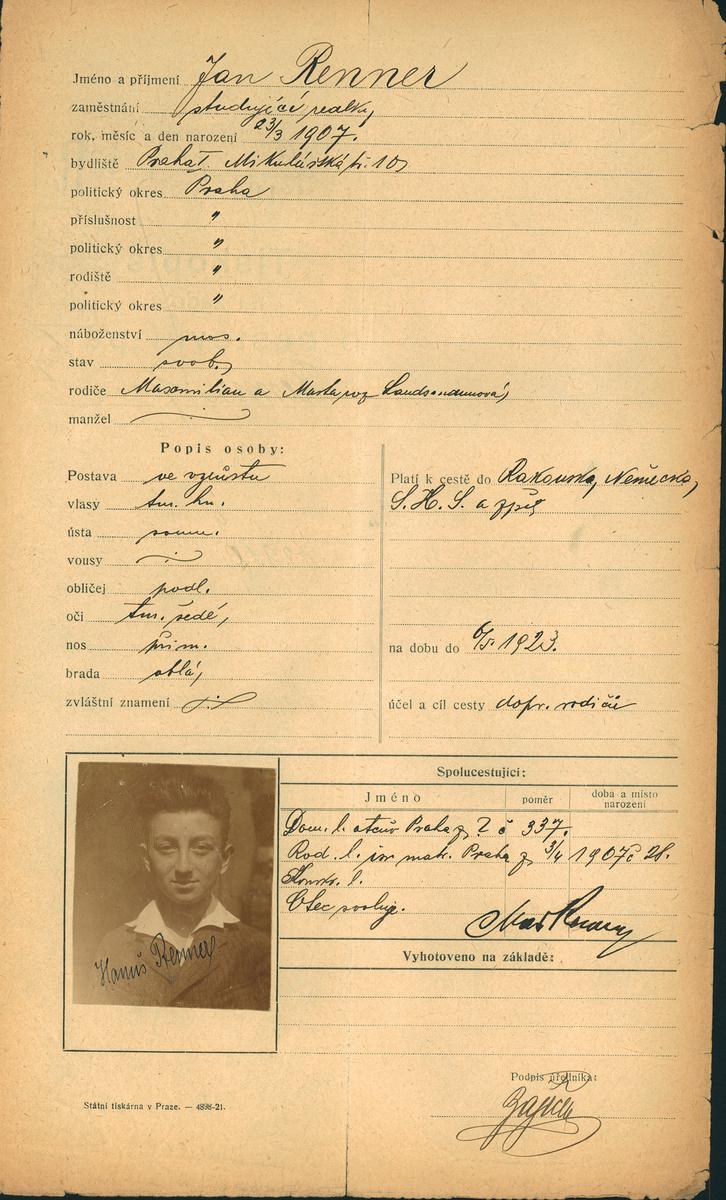 Jméno a příjmení Jan Renner
zaměstnání studující reálky
rok, měsíc a den narození 23/3 1907.
bydliště Praha I. Mikulášská tř. 10
politický okres Praha
příslušnost "
politický okres "
rodiště "
politický okres "
náboženství mos.
stav svob.
rodiče Maxmilian a Marta roz.
manžel
Popis osoby:
Postava ve vzrůstu
vlasy tm. hn.
ústa soum.
vousy
obličej podl.
oči tm. šedé,
nos přim.
brada oblá,
zvláštní znamení
Platí k cestě do Rakouska, Německa,
S. H. S. a zpět
na dobu do 1923.
účel a cíl cesty dopr. rodiče
Spolucestující:
Jméno poměr doba a místo narození
Dom. l. otcův Praha č 337.
Rod. l. isr. matr. Praha z 3/4 1907 č 28.
Otec svoluj.
Vyhotoveno na základě:
Hanuš Renner
Podpis úředníka:
Státní tiskárna v Praze. — 4898-21.